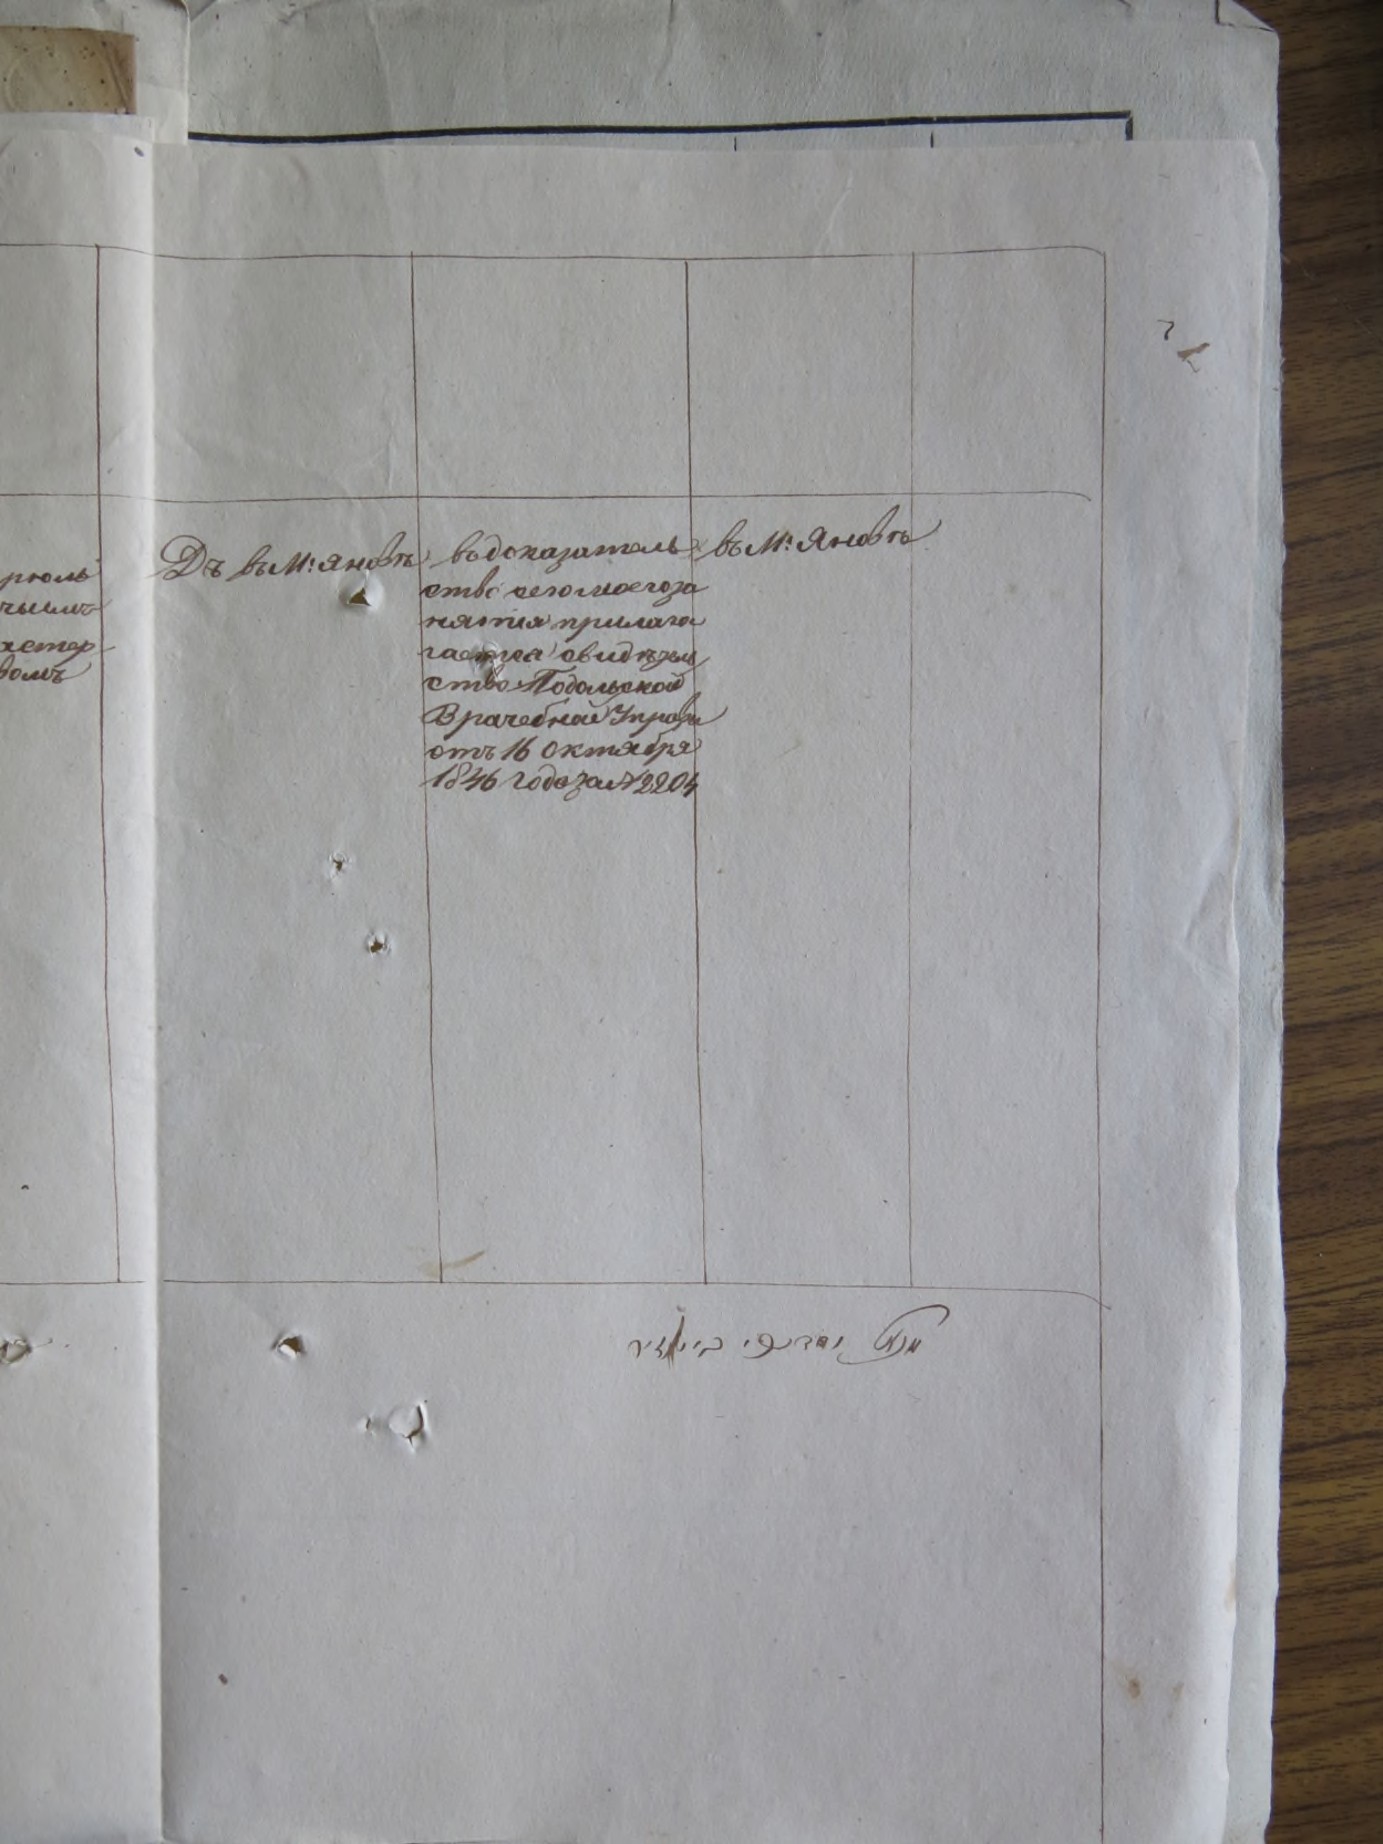 рюль
чнымъ
астер
вомъ
Дъ въ М: Яновѣ
въ доказатель
ство сего моего за
нятия прилага
гается свидѣтель
ство Подольской
Врачебной Управы
отъ 16 октября
1846 года за № 2204
въ М: Яновѣ